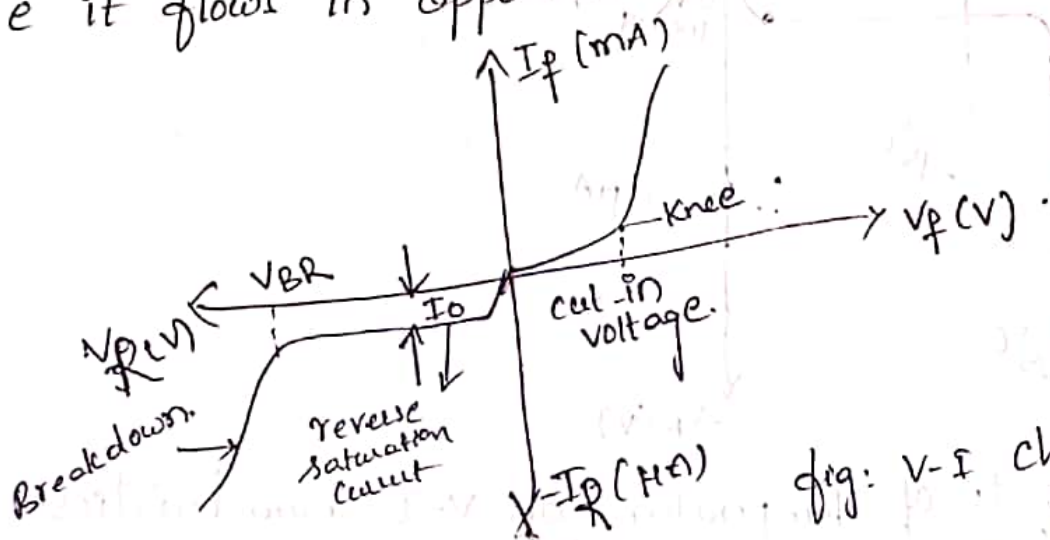 e it flows in opp
If (mA)
Knee
Vf (V)
VBR
I0
cut-in
voltage.
VR(V)
Breakdown.
reverse
saturation
current
-IR (μA)
fig: V-I Ch